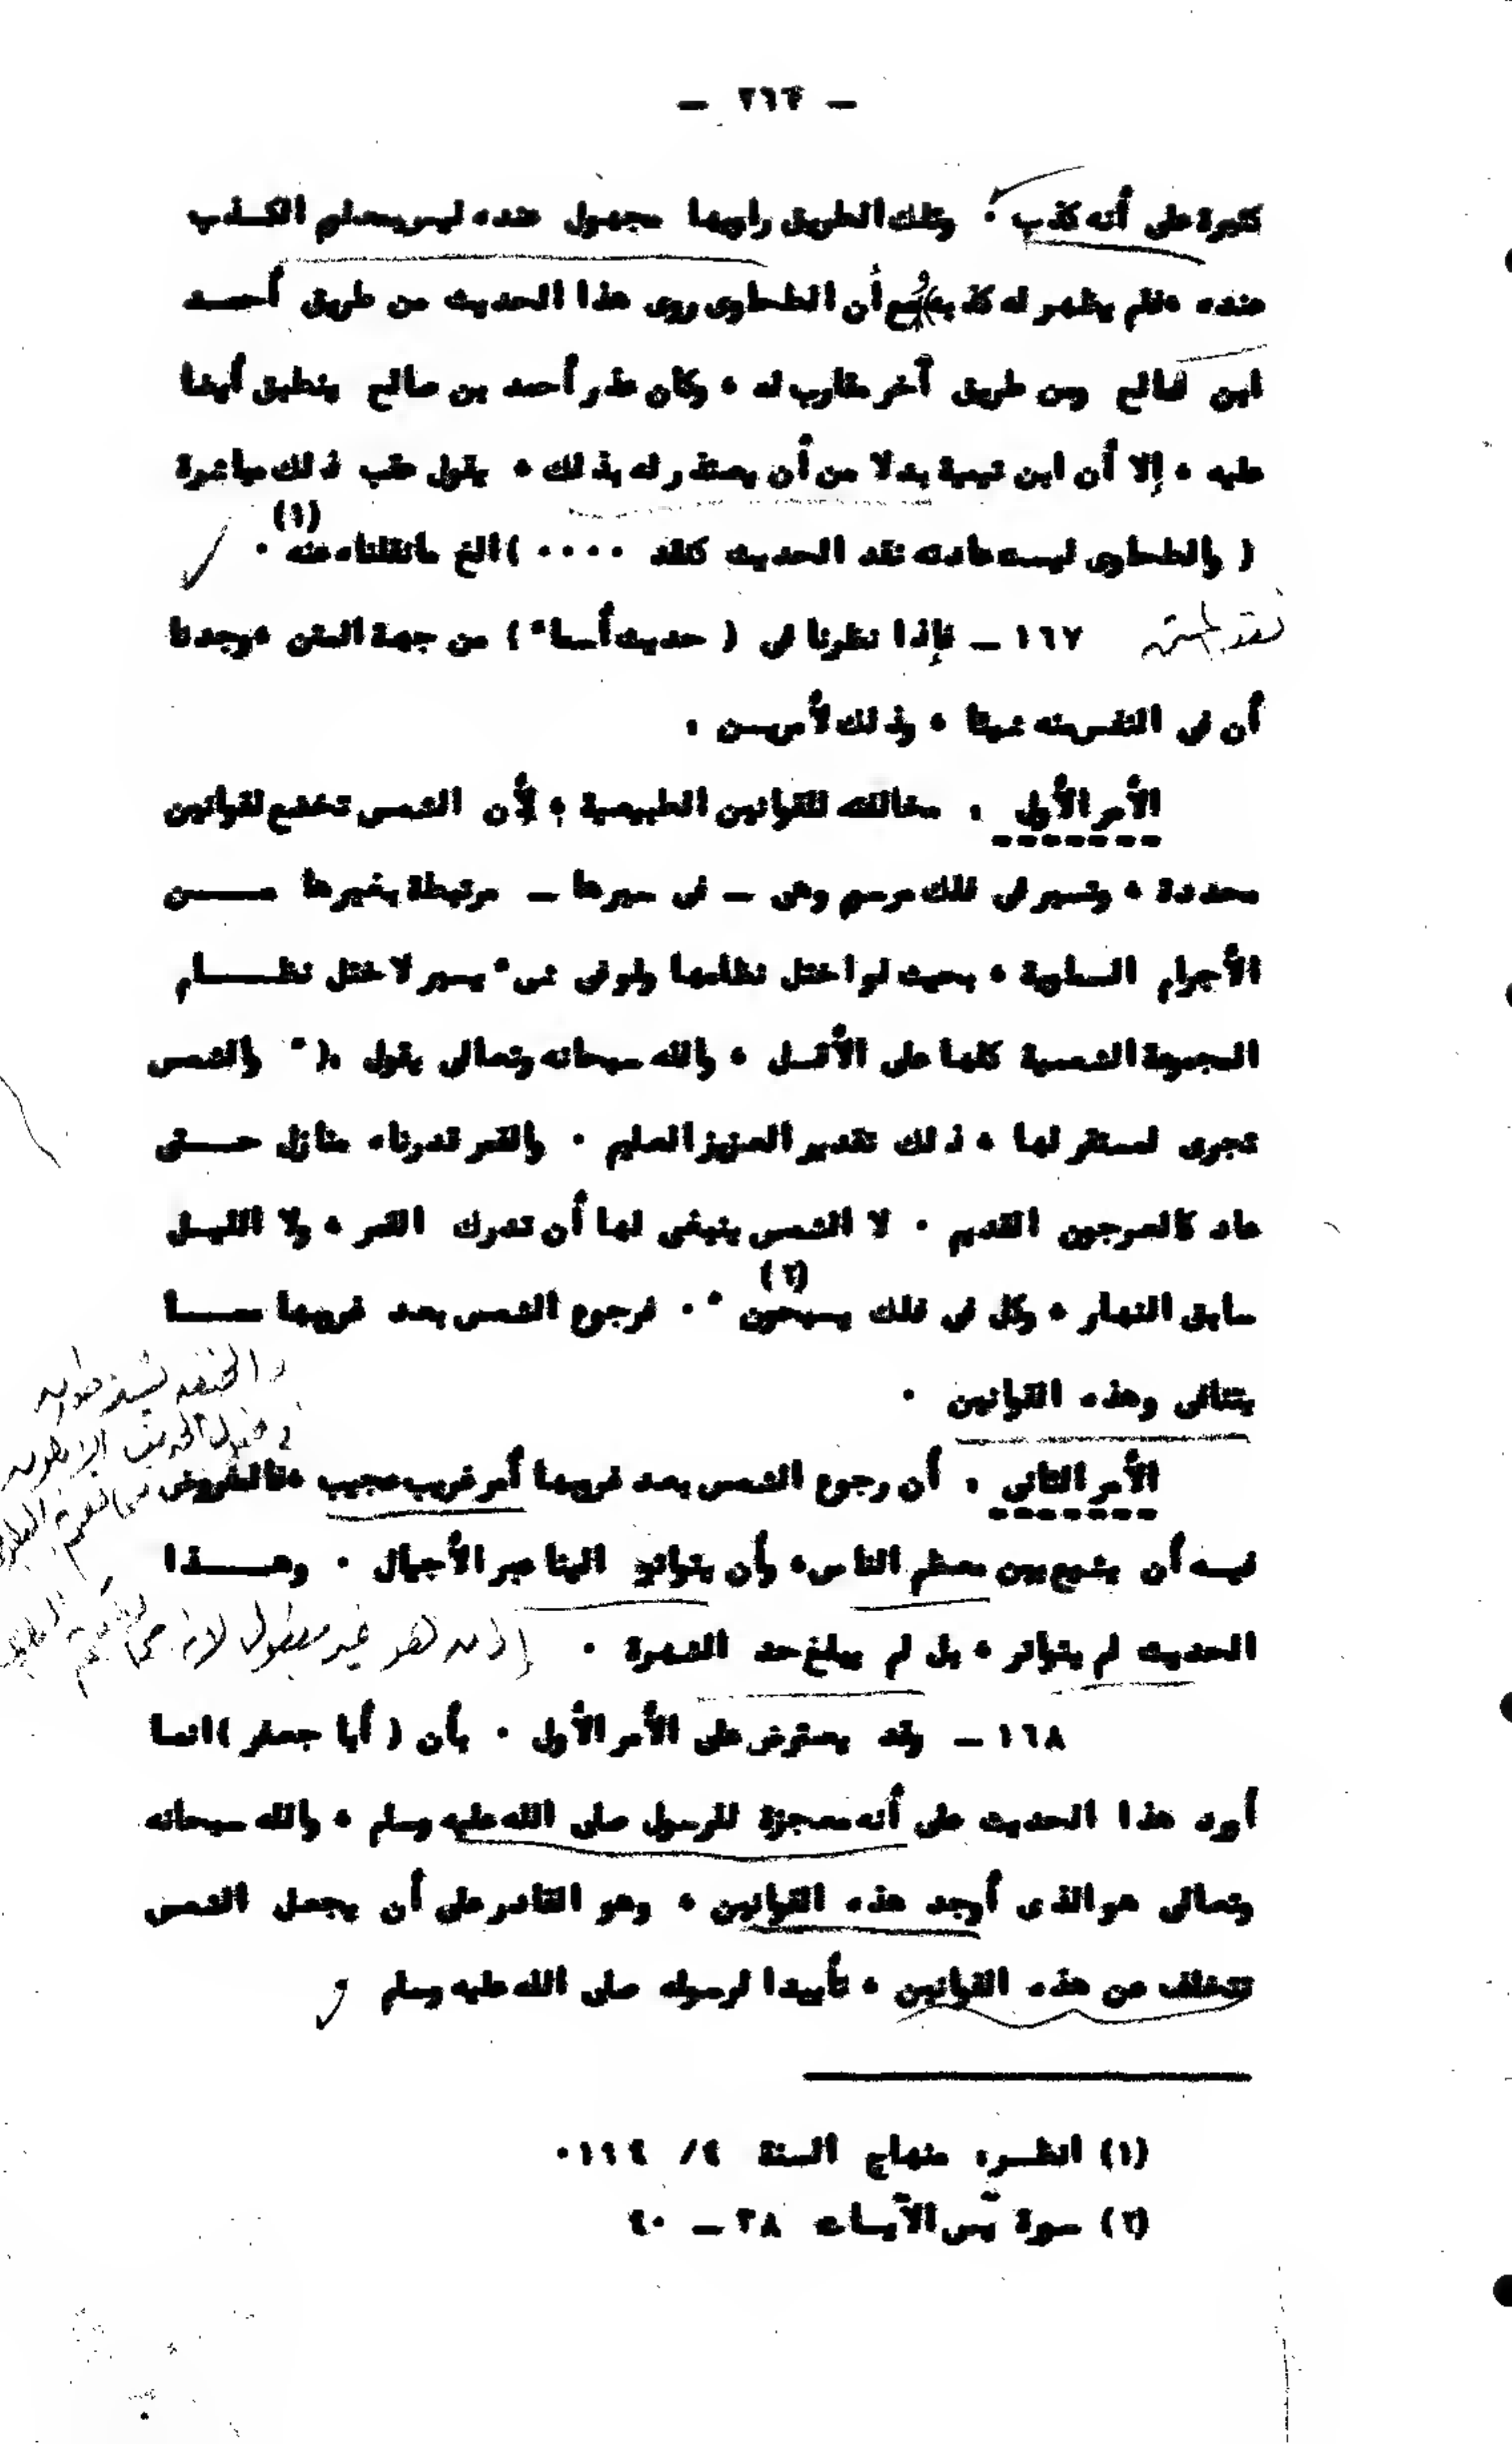 — ٢٦٢ —
كثيرة على أنه كذب ٠ وتلك الطريق راويها مجهول عنده ليس يعلم الكــذب
عنده ،فلم يظهر له كذبه مع أن الطحاوى روى هذا الحديث من طريق أحمــد
ابن صالح ومن طريق آخر مقارب له ، وكان عذر أحمد بن صالح ينطبق أيضا
عليه ، إلا أن ابن تيمية بدلا من أن يعتذر له بذلك ، يقول عقب ذلك مباشرة
( والطحاوى ليست عادته نقد الحديث كنقد ٠٠٠٠ ) الخ مانقلناه عنه (١) ٠
نقد المتن ١٦٧ — فإذا نظرنا فى ( حديث أسماء ) من جهة المتن ،وجدنا
أن فى النفس منه شيئا ، وذلك لأمريــن :
الأمر الأول : مخالفته للقوانين الطبيعية ؛ لأن الشمس تخضع لقوانين
محددة ، وتسير فى فلك مرسوم وهى — فى سيرها — مرتبطة بغيرها مــــن
الأجرام السماوية ، بحيث لو اختل نظامها ولو فى شىء يسير لاختل نظــــام
المجموعة الشمسية كلها على الأقــل ، والله سبحانه وتعالى يقول :( " والشمس
تجرى لمستقر لها ، ذلك تقدير العزيز العليم ٠ والقمر قدرناه منازل حـــتى
عاد كالعرجون القديم ٠ لا الشمس ينبغى لها أن تدرك القمر ، ولا الليــل
سابق النهار ، وكل فى فلك يسبحون (٢) " ٠ فرجوع الشمس بعد غروبها ممـــا
يتنافى وهذه القوانين ٠
الأمر الثانى : أن رجوع الشمس بعد غروبها أمر غريب عجيب ،فالمفروض
فيــه أن يشيع بين معظم الناس، وأن يتواتر الينا عبر الأجيال ٠ وهـــذا
الحديث لم يتواتر ، بل لم يبلغ حد الشهرة ٠
١٦٨ — وقد يعترض على الأمر الأول ٠ بأن ( أبا جعفر ) انما
أورد هذا الحديث على أنه معجزة للرسول صلى الله عليه وسلم ، والله سبحانه
وتعالى هو الذى أوجد هذه القوانين ، وهو القادر على أن يجعل الشمس
تتخلف عن هذه القوانين ، تأييدا لرسوله صلى الله عليه وسلم
(١) انظــر: منهاج السنة ٤/ ١٩٤٠
(٢) ســورة يٓس الآيــات ٣٨ — ٤٠